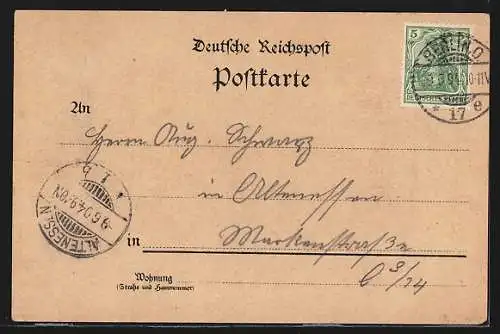 Deutsche Reichspost
Postkarte
5
BERLIN.O.
* 17 e
An
Herrn Aug. Schwarz
in Altenessen
ALTENESSEN
in Markenstraße
63/24
Wohnung
(Straße und Hausnummer)